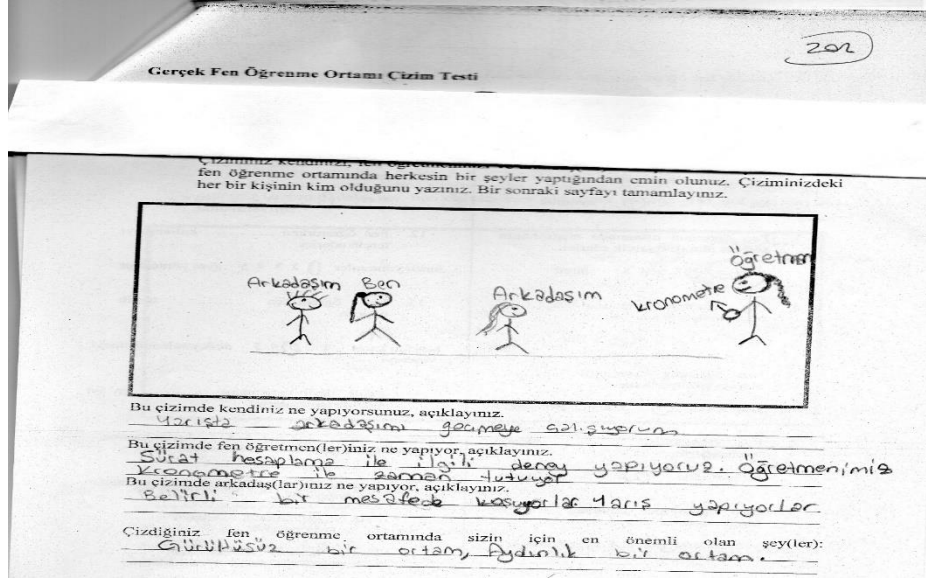 202
Gerçek Fen Öğrenme Ortamı Çizim Testi
Çiziminiz kendinizi, fen
fen öğrenme ortamında herkesin bir şeyler yaptığından emin olunuz. Çiziminizdeki
her bir kişinin kim olduğunu yazınız. Bir sonraki sayfayı tamamlayınız.
Öğretmen
Arkadaşım Ben
Arkadaşım
kronometre
Bu çizimde kendiniz ne yapıyorsunuz, açıklayınız.
Yarışta arkadaşımı geçmeye çalışıyorum
Bu çizimde fen öğretmen(ler)iniz ne yapıyor, açıklayınız.
Sürat hesaplama ile ilgili deney yapıyoruz. Öğretmenimiz
kronometre ile zaman tutuyor
Bu çizimde arkadaş(lar)ınız ne yapıyor, açıklayınız.
Belirli bir mesafede koşuyorlar yarış yapıyorlar.
Çizdiğiniz fen öğrenme ortamında sizin için en önemli olan şey(ler):
Gürültüsüz bir ortam, Aydınlık bir ortam.